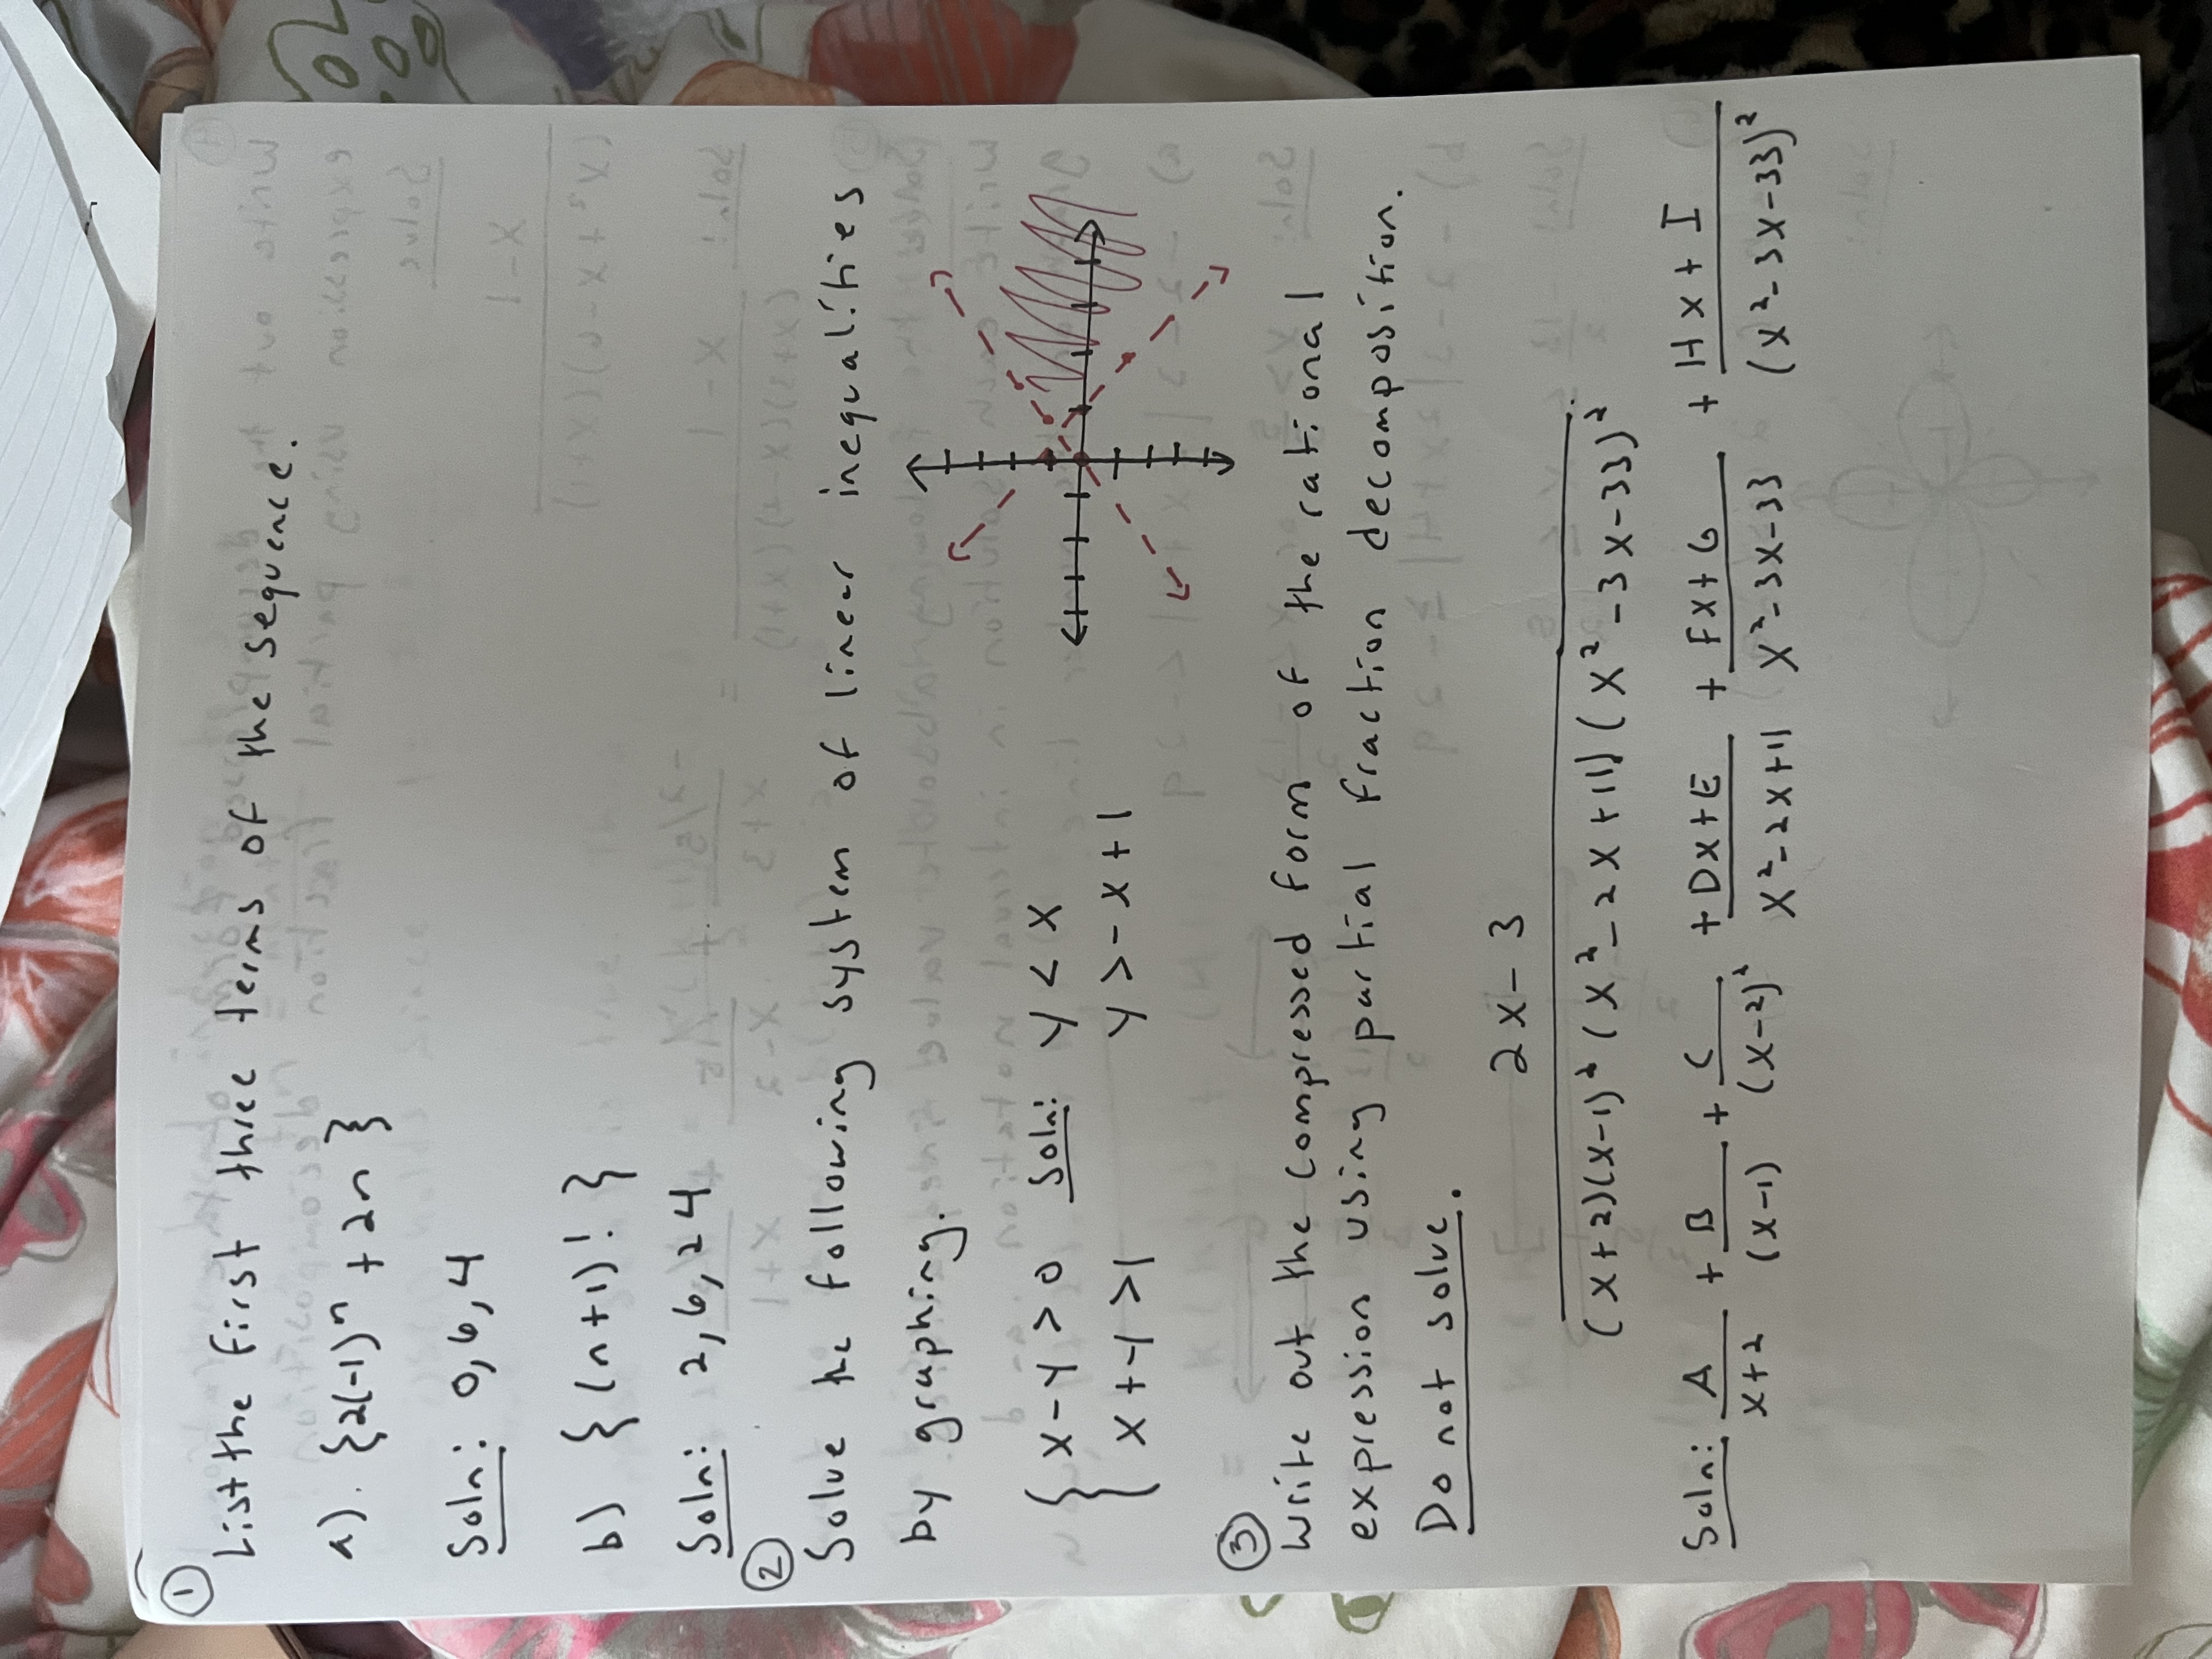 ①
List the first three terms of the sequence.
a). {2(-1)ⁿ + 2n}
Soln: 0, 6, 4
b) {(n+1)!}
Soln: 2, 6, 24
②
Solve the following system of linear inequalities
by graphing.
{ x - y > 0 Soln: y < x
x + y > 1 y > -x + 1
③
Write out the compressed form of the rational
expression using partial fraction decomposition.
Do not solve.
2x - 3
(x+2)(x-1)²(x²-2x+11)(x²-3x-33)²
Soln: A/(x+2) + B/(x-1) + C/(x-2)² + (Dx+E)/(x²-2x+11) + (Fx+G)/(x²-3x-33) + (Hx+I)/(x²-3x-33)²